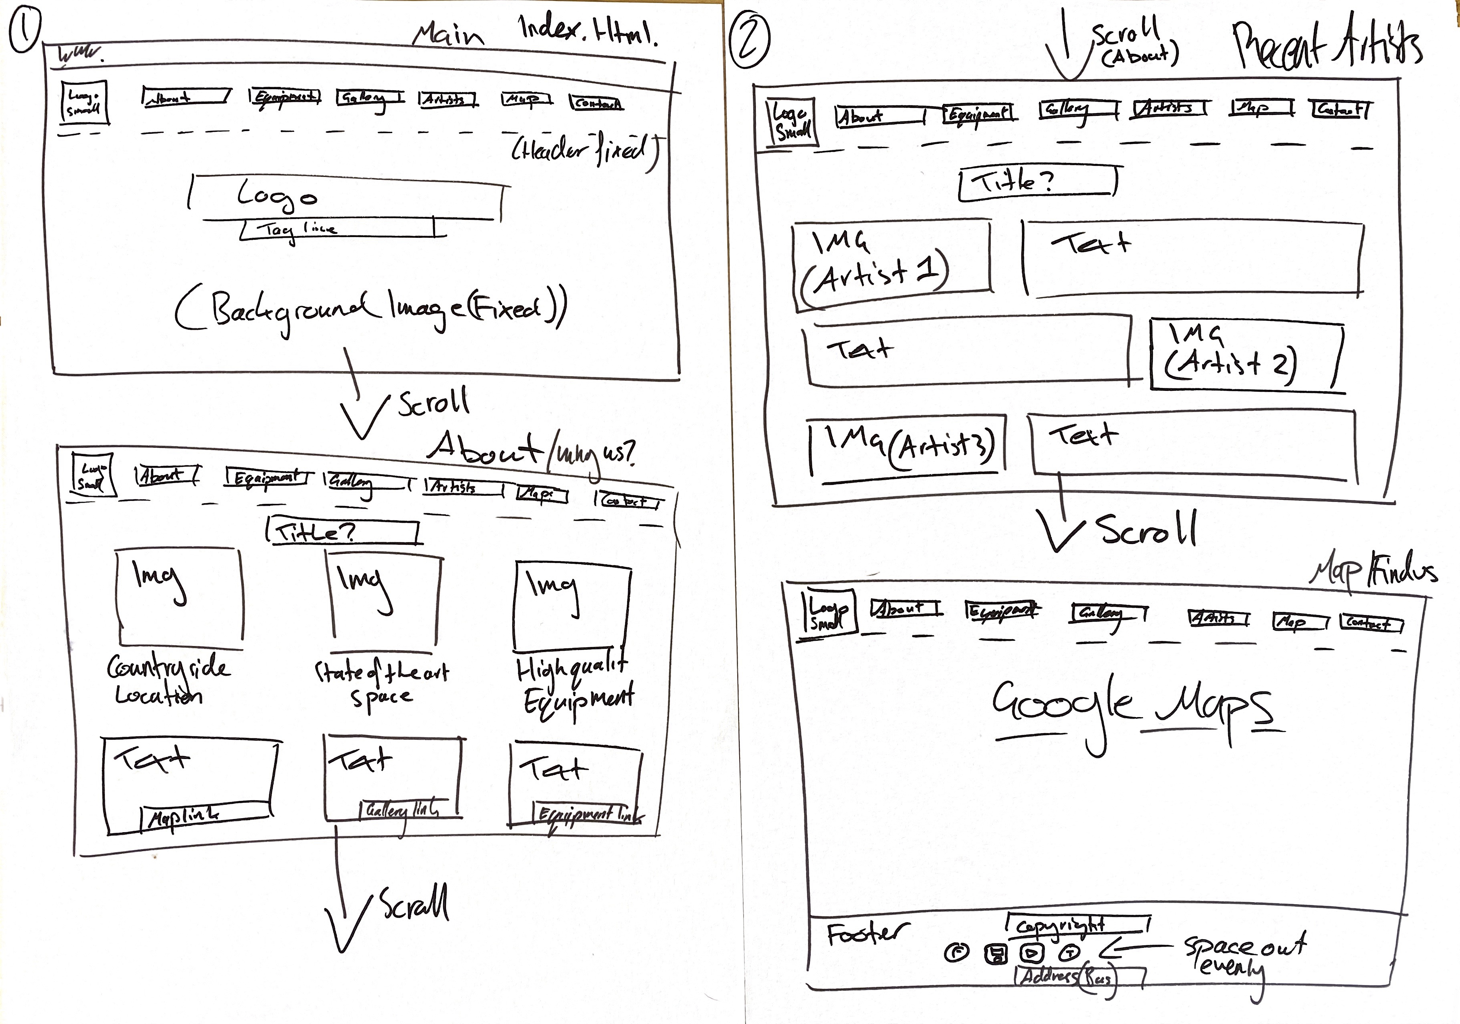 1
Main Index.Html.
www.
Logo
Small
About
Equipment
Gallery
Artists
Map
Contact
(Header fixed)
Logo
Tag line
(Background Image(Fixed))
Scroll
About/
us?
Logo
Small
About
Equipment
Gallery
Artists
Maps
Contact
Title?
Img
Img
Img
Countryside
Location
State of the art
space
High qualit
Equipment
Text
Map link
Text
Gallery link
Text
Equipment link
Scroll
2
Scroll
(About)
Recent Artists
Logo
Small
About
Equipment
Gallery
Artists
Map
Contact
Title?
IMG
(Artist 1)
Text
Text
IMG
(Artist 2)
IMG (Artist 3)
Text
Scroll
Map/Find us
Logo
Small
About
Equipment
Gallery
Artists
Map
Contact
Google Maps
Footer
Copyright
F
T
space out
evenly
Address